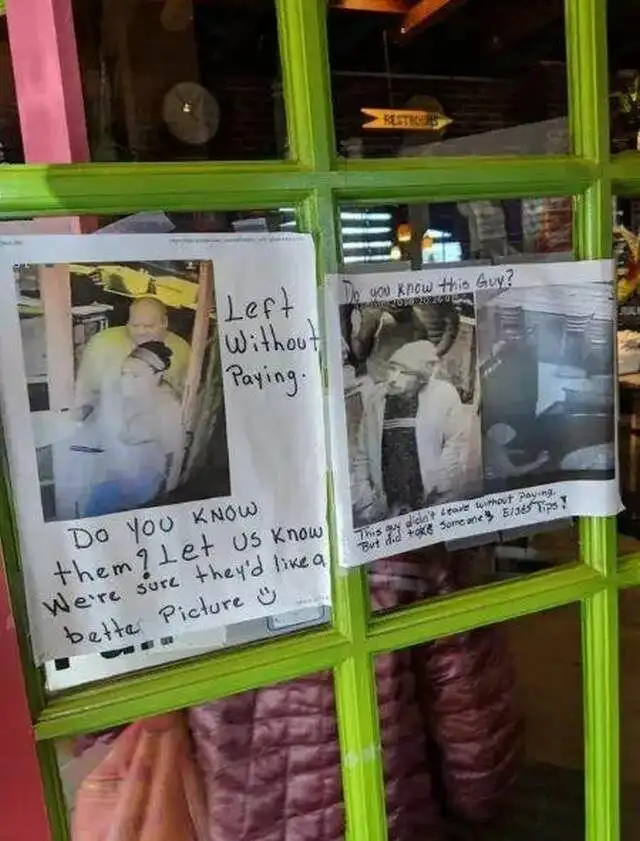 RESTROOMS
Left
Without
Paying.
Do you know
them? Let us know
We're sure they'd like a
better Picture
Do you know this Guy?
This guy didn't Leave without Paying.
But did take someone's Elses Tips!